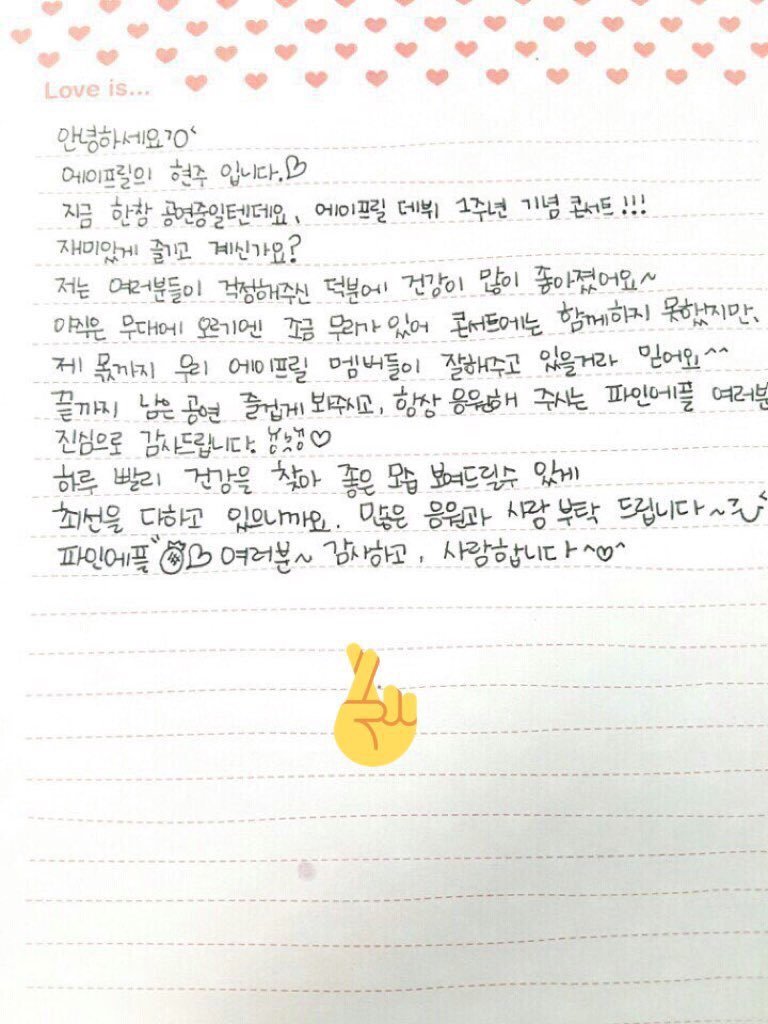 Love is...
안녕하세요?O'
에이프릴의 현주 입니다.♡
지금 한창 공연중일텐데요, 에이프릴 데뷔 1주년 기념 콘서트!!!
재미있게 즐기고 계신가요?
저는 여러분들이 걱정해주신 덕분에 건강이 많이 좋아졌어요~
아직은 무대에 오르기엔 조금 무리가 있어 콘서트에는 함께하지 못했지만,
제 몫까지 우리 에이프릴 멤버들이 잘해주고 있을거라 믿어요^^
끝까지 남은 공연 즐겁게 봐주시고, 항상 응원해 주시는 파인에플 여러분
진심으로 감사드립니다. ♡
하루 빨리 건강을 찾아 좋은 모습 보여드릴수 있게
최선을 다하고 있으니까요. 많은 응원과 사랑 부탁 드립니다~
파인에플♡ 여러분~ 감사하고, 사랑합니다^♡^